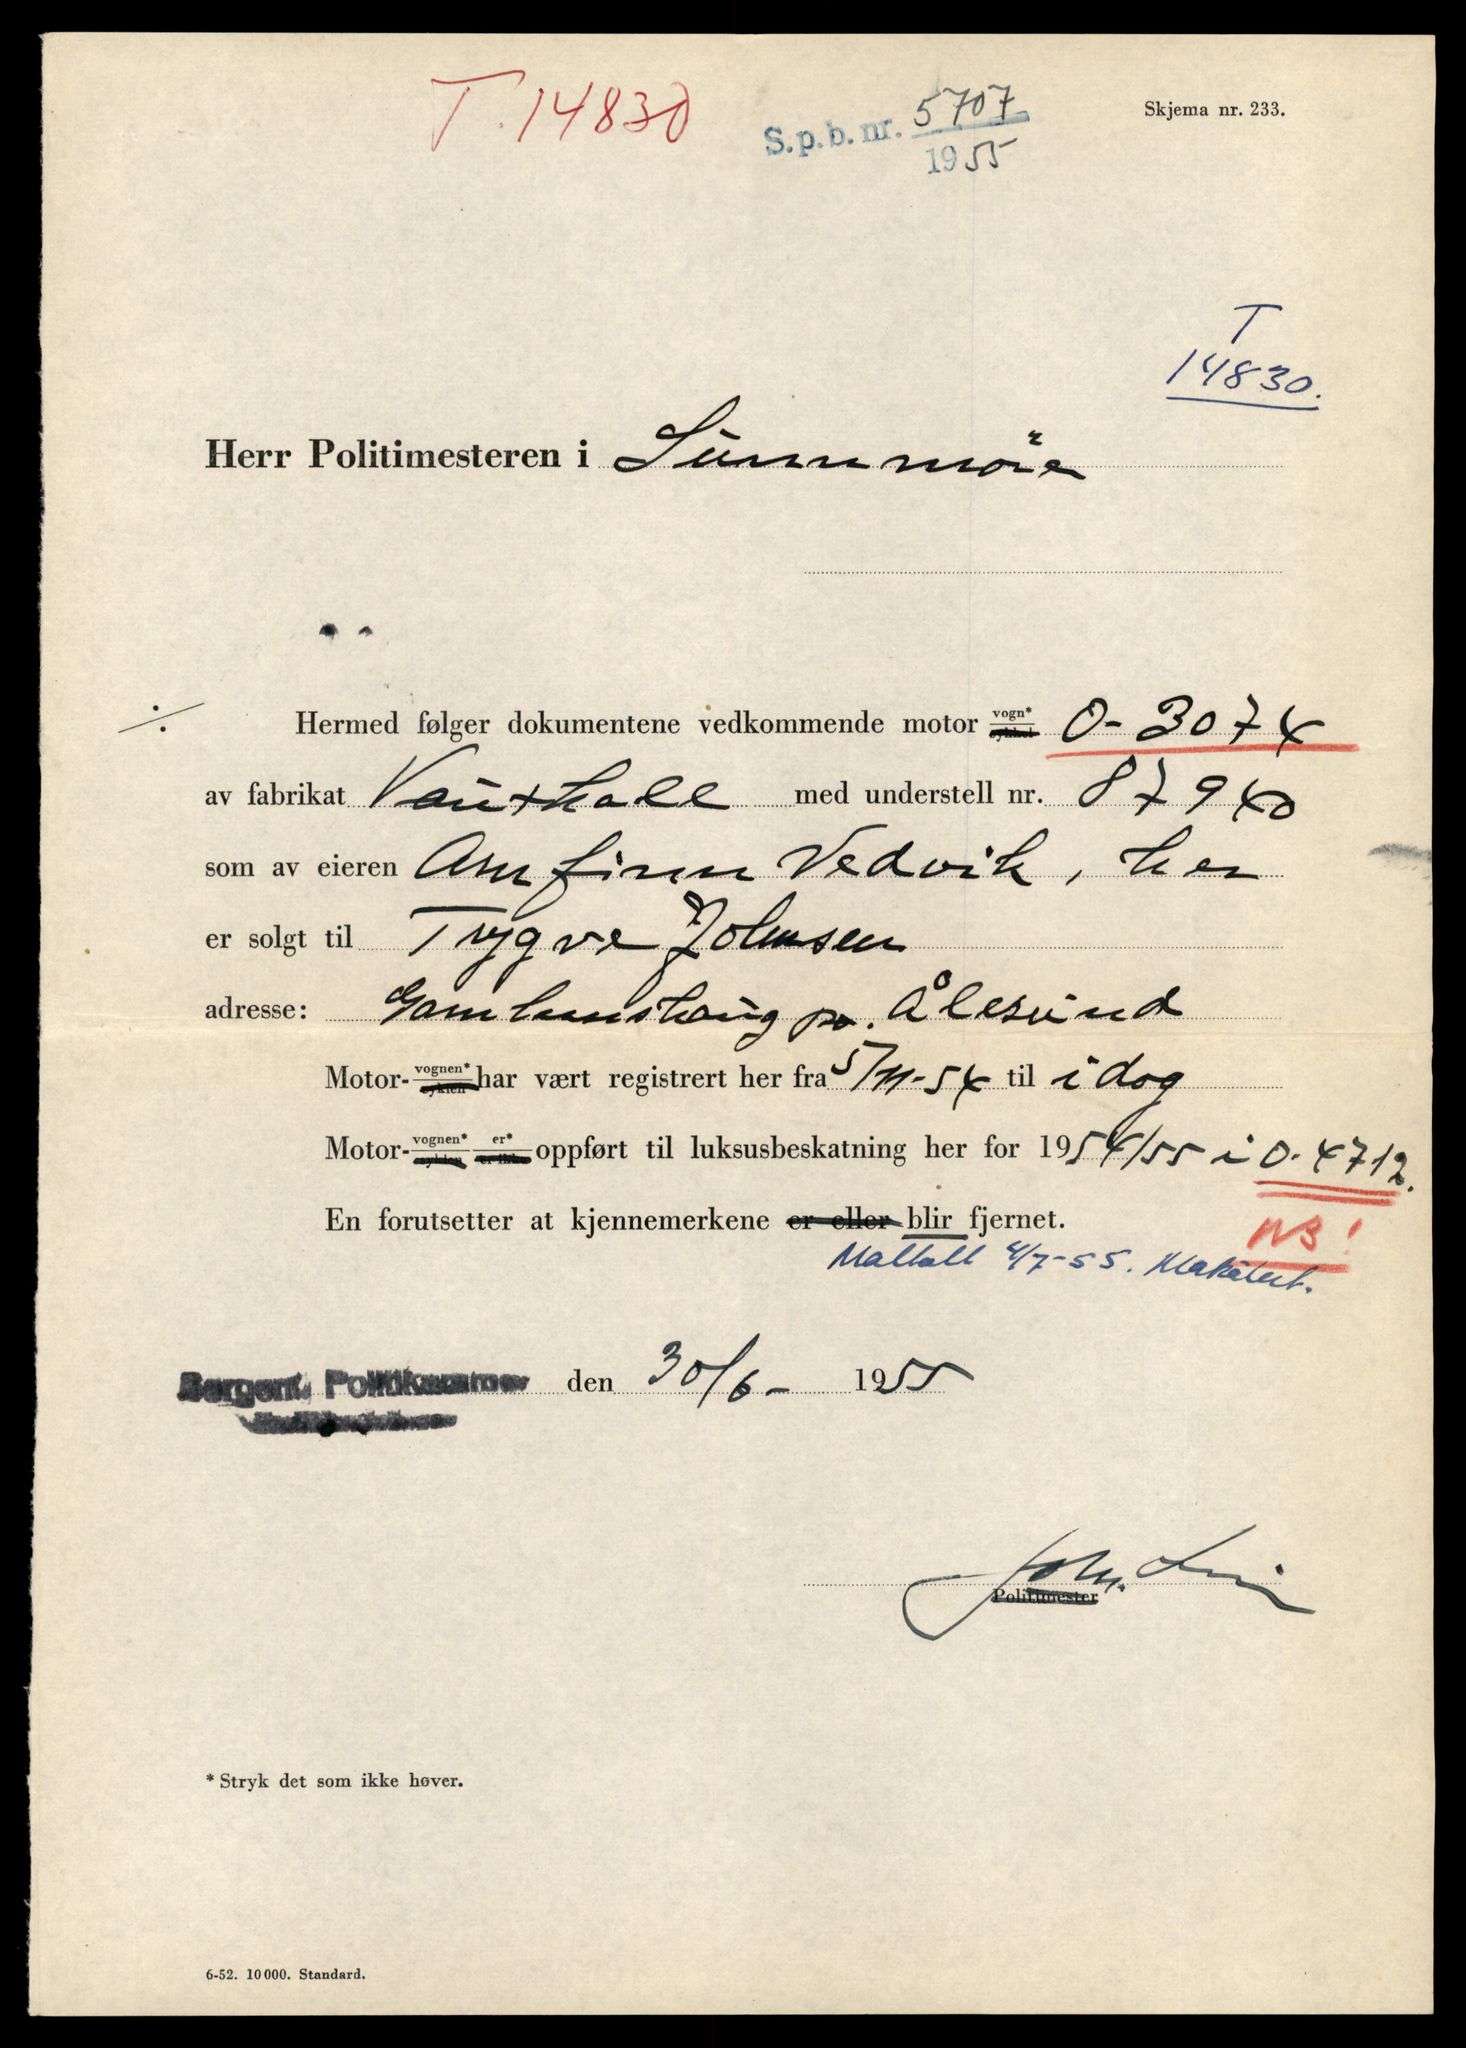 T. 14830
S.p.b. nr. 5707
1955
Skjema nr. 233.
T
14830.
Herr Politimesteren i Sunnmøre
÷ Hermed følger dokumentene vedkommende motor vogn* sykkel O-3074
av fabrikat Vauxhall med understell nr. 87940
som av eieren Arnfinn Vedvik, her
er solgt til Trygve Johnsen
adresse: Gamlemshaug pr. Ålesund
Motor- vognen* syklen har vært registrert her fra 5/11-54 til i dag
Motor- vognen* syklen er* er ikke oppført til luksusbeskatning her for 1954/55 i O-4712.
En forutsetter at kjennemerkene er eller blir fjernet.
NB!
Mottatt 4/7-55.
Bergens Politikammer den 30/6- 1955
Politimester
* Stryk det som ikke høver.
6-52. 10 000. Standard.